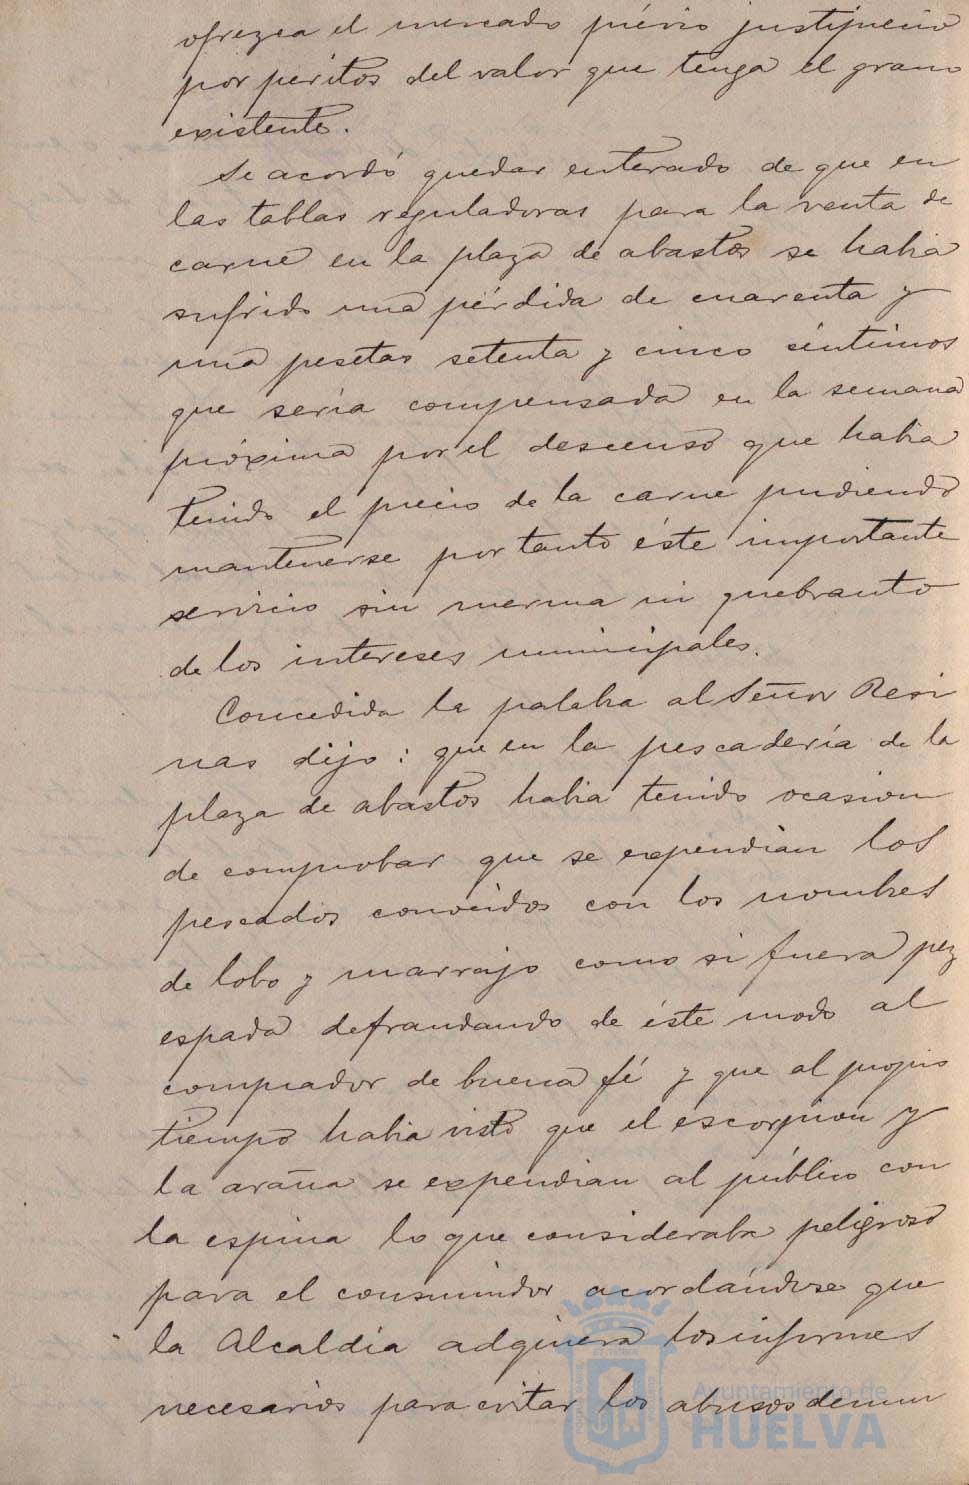 ofrezca el mercado prévio justiprecio
por peritos del valor que tenga el grano
existente.
Se acordó quedar enterado de que en
las tablas reguladoras para la venta de
carne en la plaza de abastos se habia
sufrido una pérdida de cuarenta y
una pesetas setenta y cinco céntimos
que sería compensada en la semana
próxima por el descenso que habia
tenido el precio de la carne pudiendo
mantenerse por tanto éste importante
servicio sin merma ni quebranto
de los intereses municipales.
Concedida la palabra al Señor Resi
nas dijo: que en la pescadería de la
plaza de abastos habia tenido ocasion
de comprobar que se expendian los
pescados conocidos con los nombres
de lobo y marrajo como si fuera pez
espada defraudando de éste modo al
comprador de buena fé y que al propio
tiempo habia visto que el escorpion y
la araña se expendian al público con
la espina lo que consideraba peligroso
para el consumidor acordándose que
la Alcaldía adquiera los informes
necesarios para evitar los abusos denun
Ayuntamiento de
HUELVA